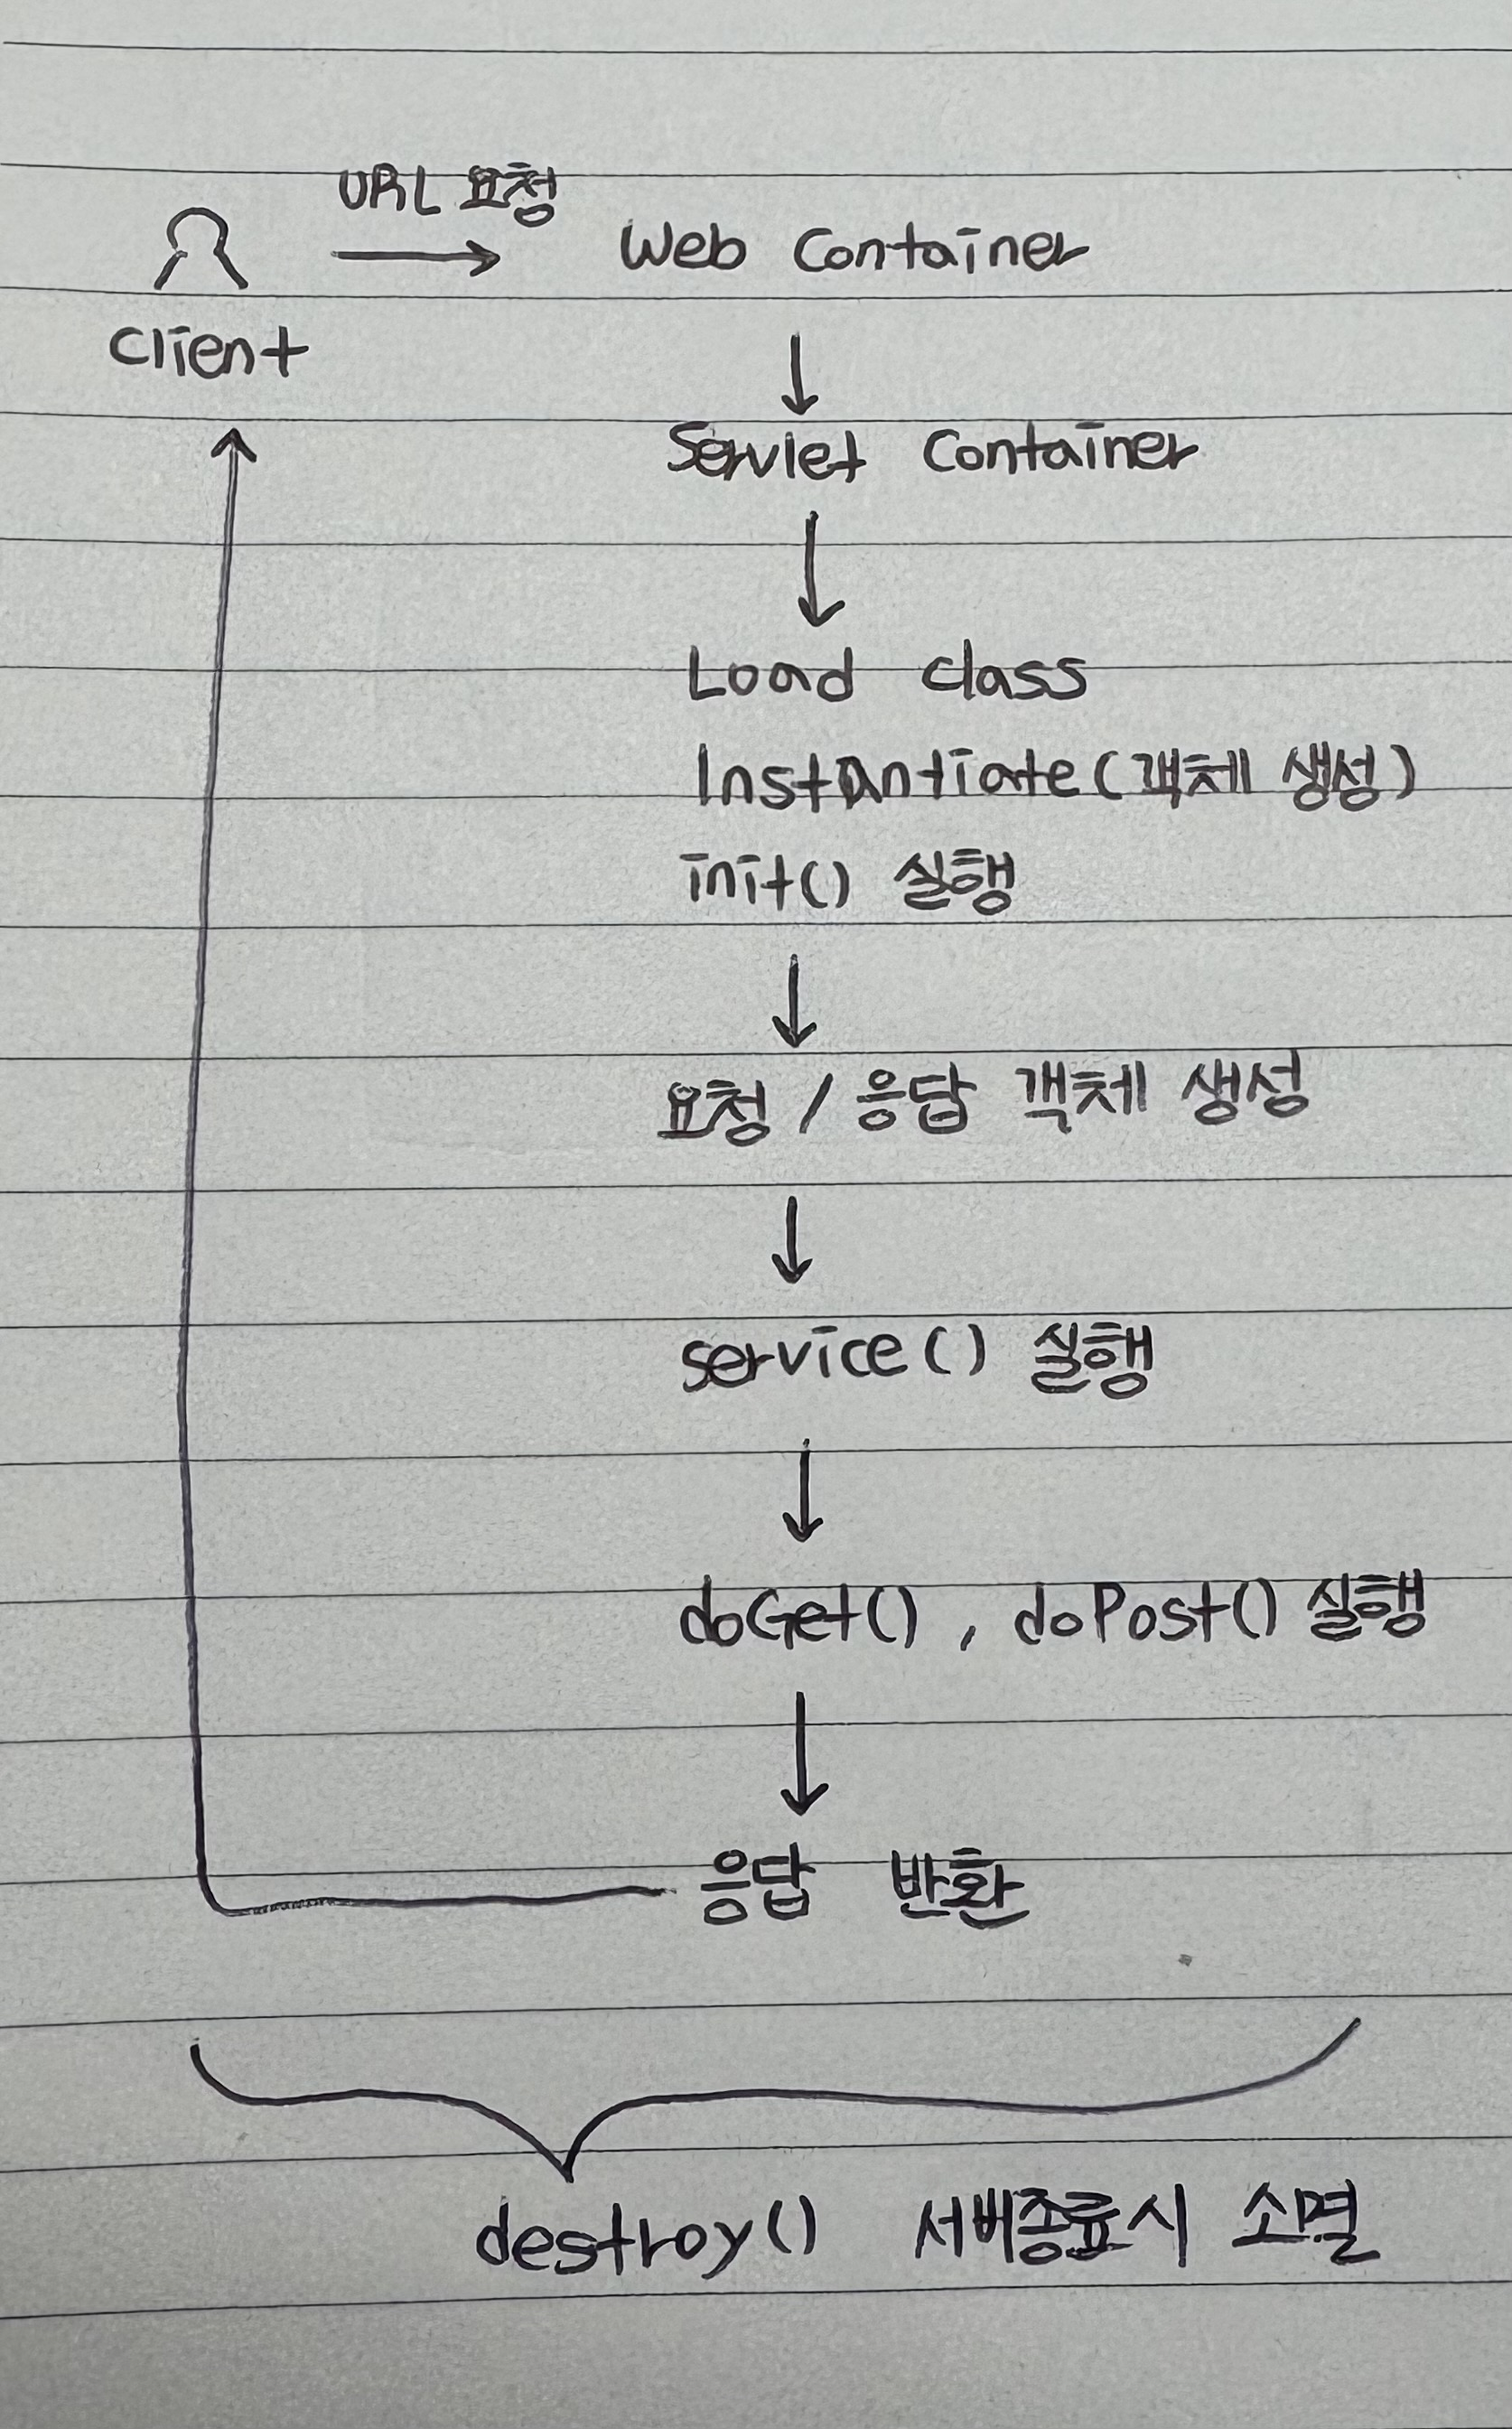 URL 요청
Web Container
Client
Servlet Container
Load class
Instantiate(객체 생성)
init() 실행
요청 / 응답 객체 생성
service() 실행
doGet() , doPost() 실행
응답 반환
destroy() 서버종료시 소멸